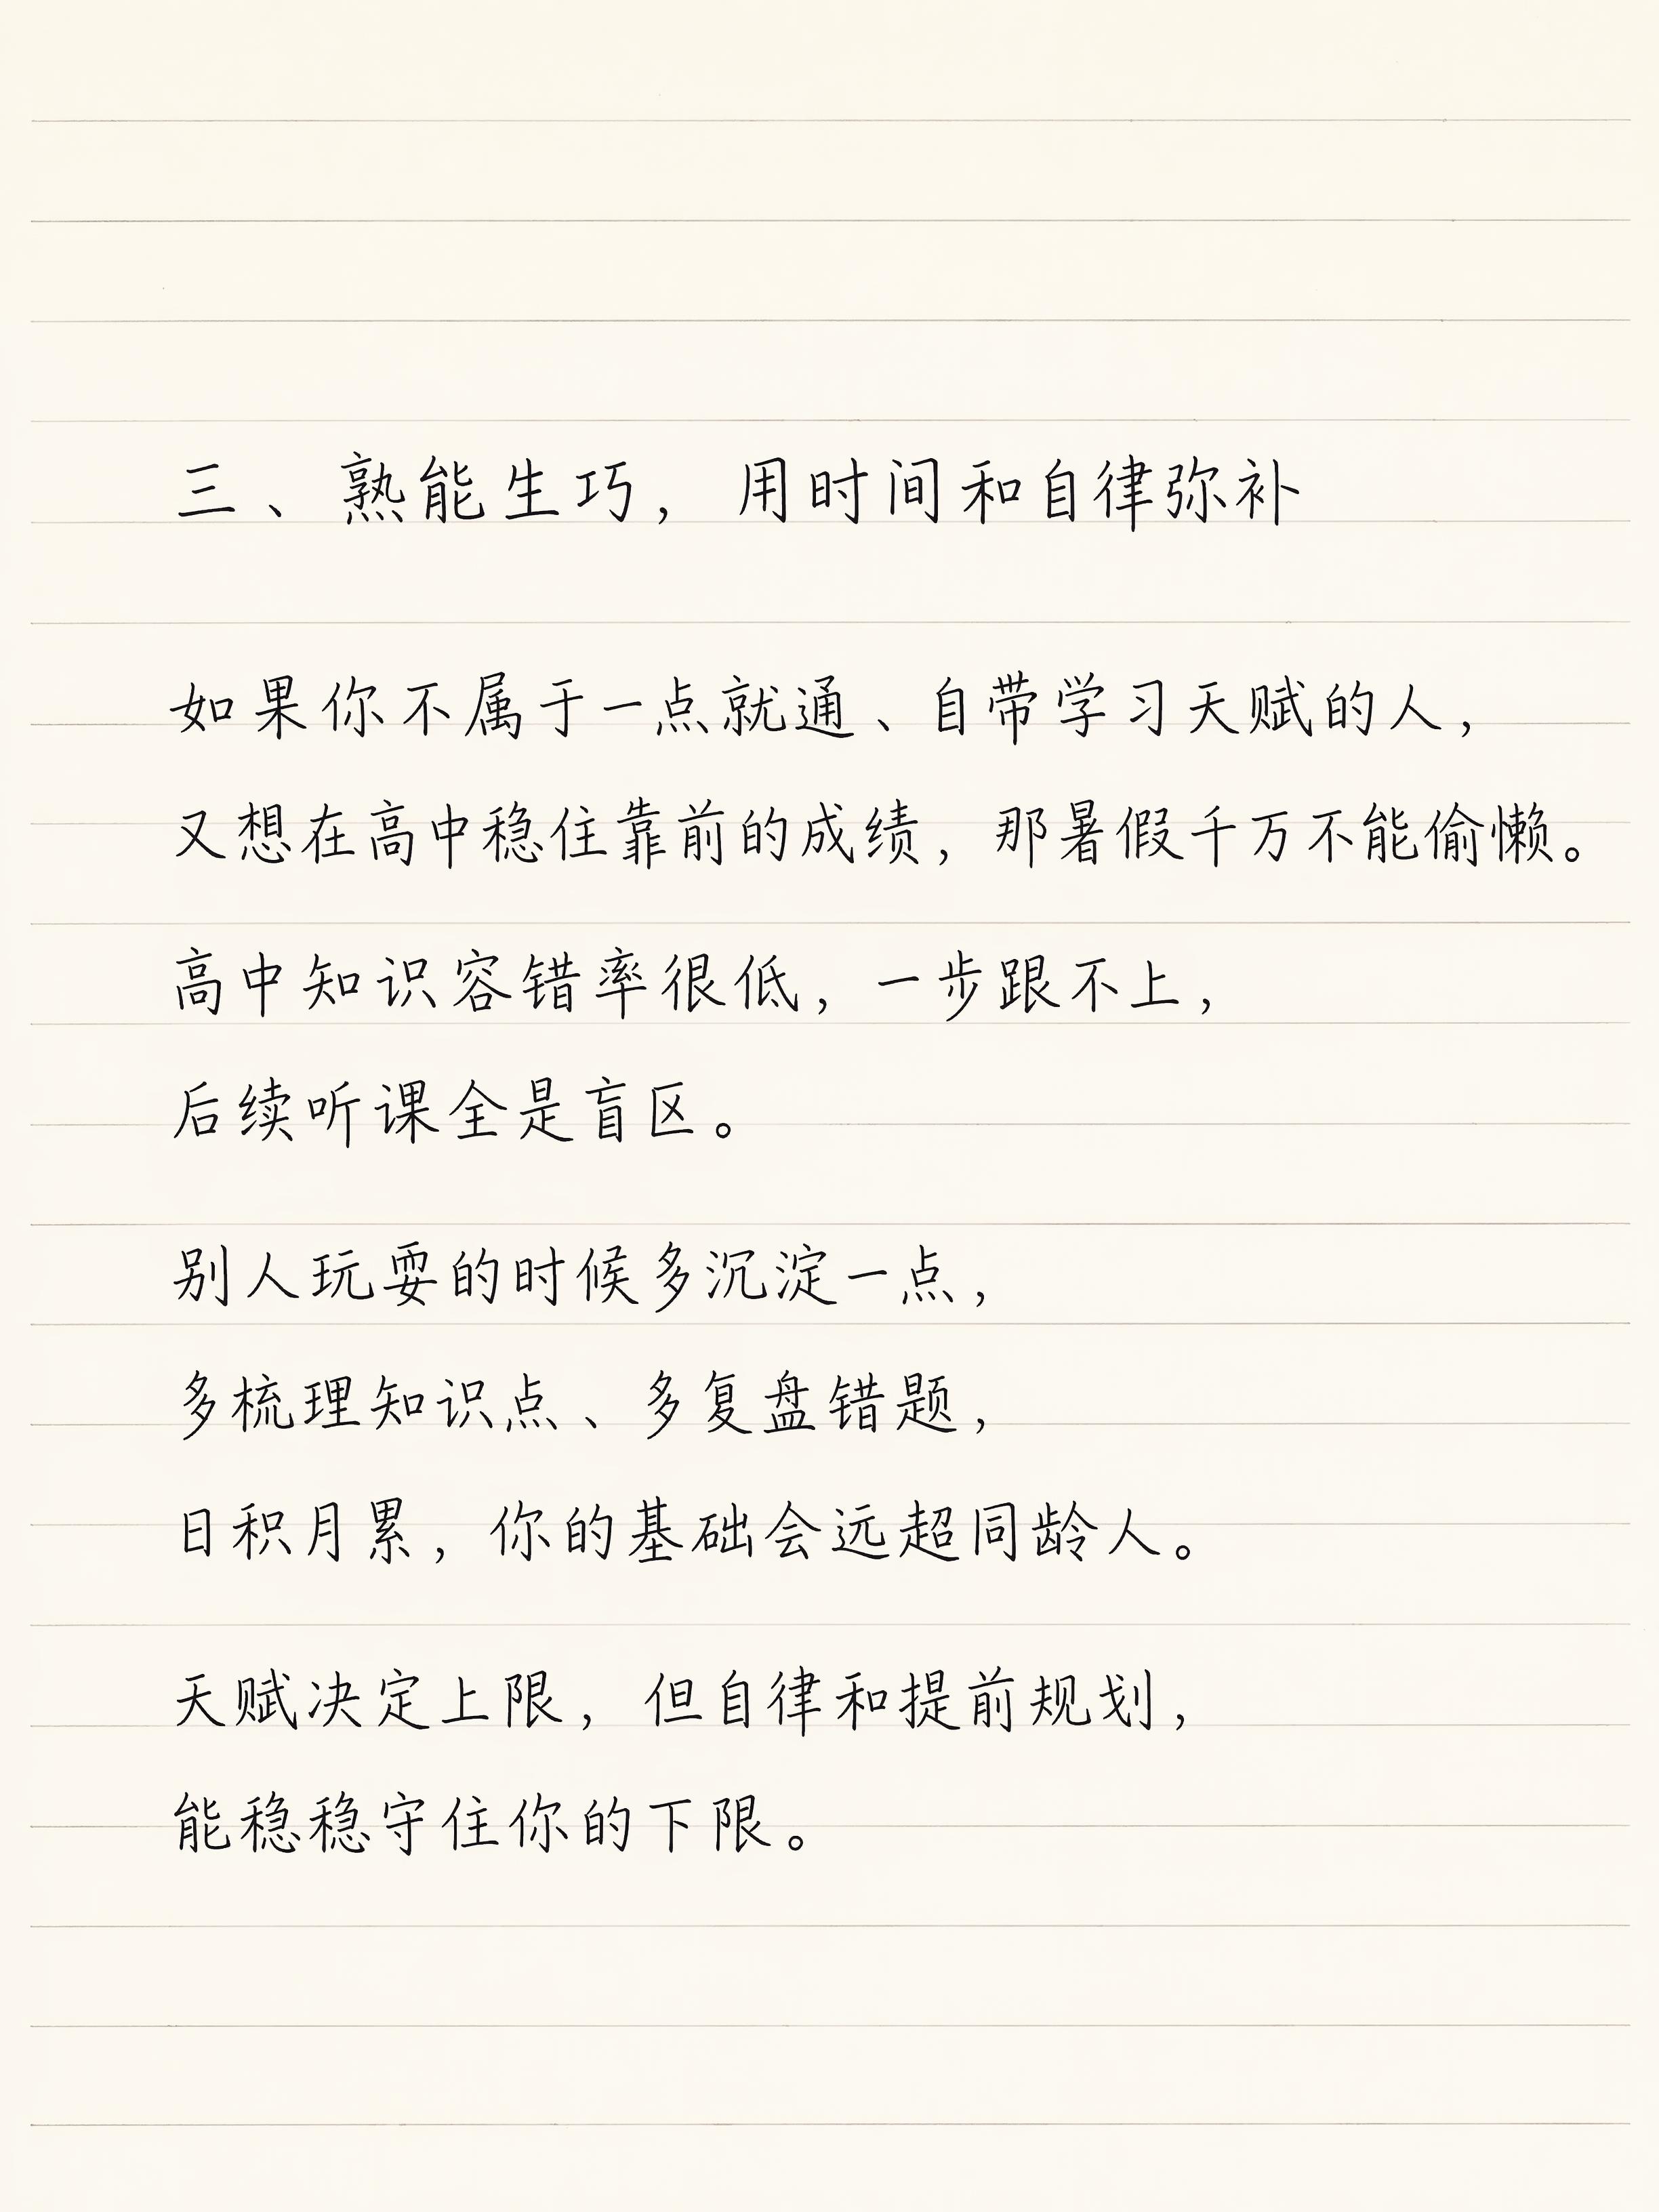 三、熟能生巧，用时间和自律弥补
如果你不属于一点就通、自带学习天赋的人，
又想在高中稳住靠前的成绩，那暑假千万不能偷懒。
高中知识容错率很低，一步跟不上，
后续听课全是盲区。
别人玩耍的时候多沉淀一点，
多梳理知识点、多复盘错题，
日积月累，你的基础会远超同龄人。
天赋决定上限，但自律和提前规划，
能稳稳守住你的下限。